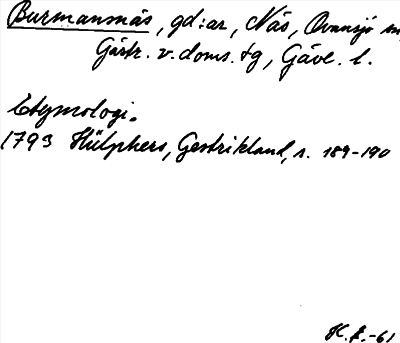 Burmansnäs, gd:ar, Näs, Ovansjö sn,
Gästr. v. doms. tg, Gävl. l.
Etymologi.
1793 Hülphers, Gestrikland, s. 189-190
K.L.-61